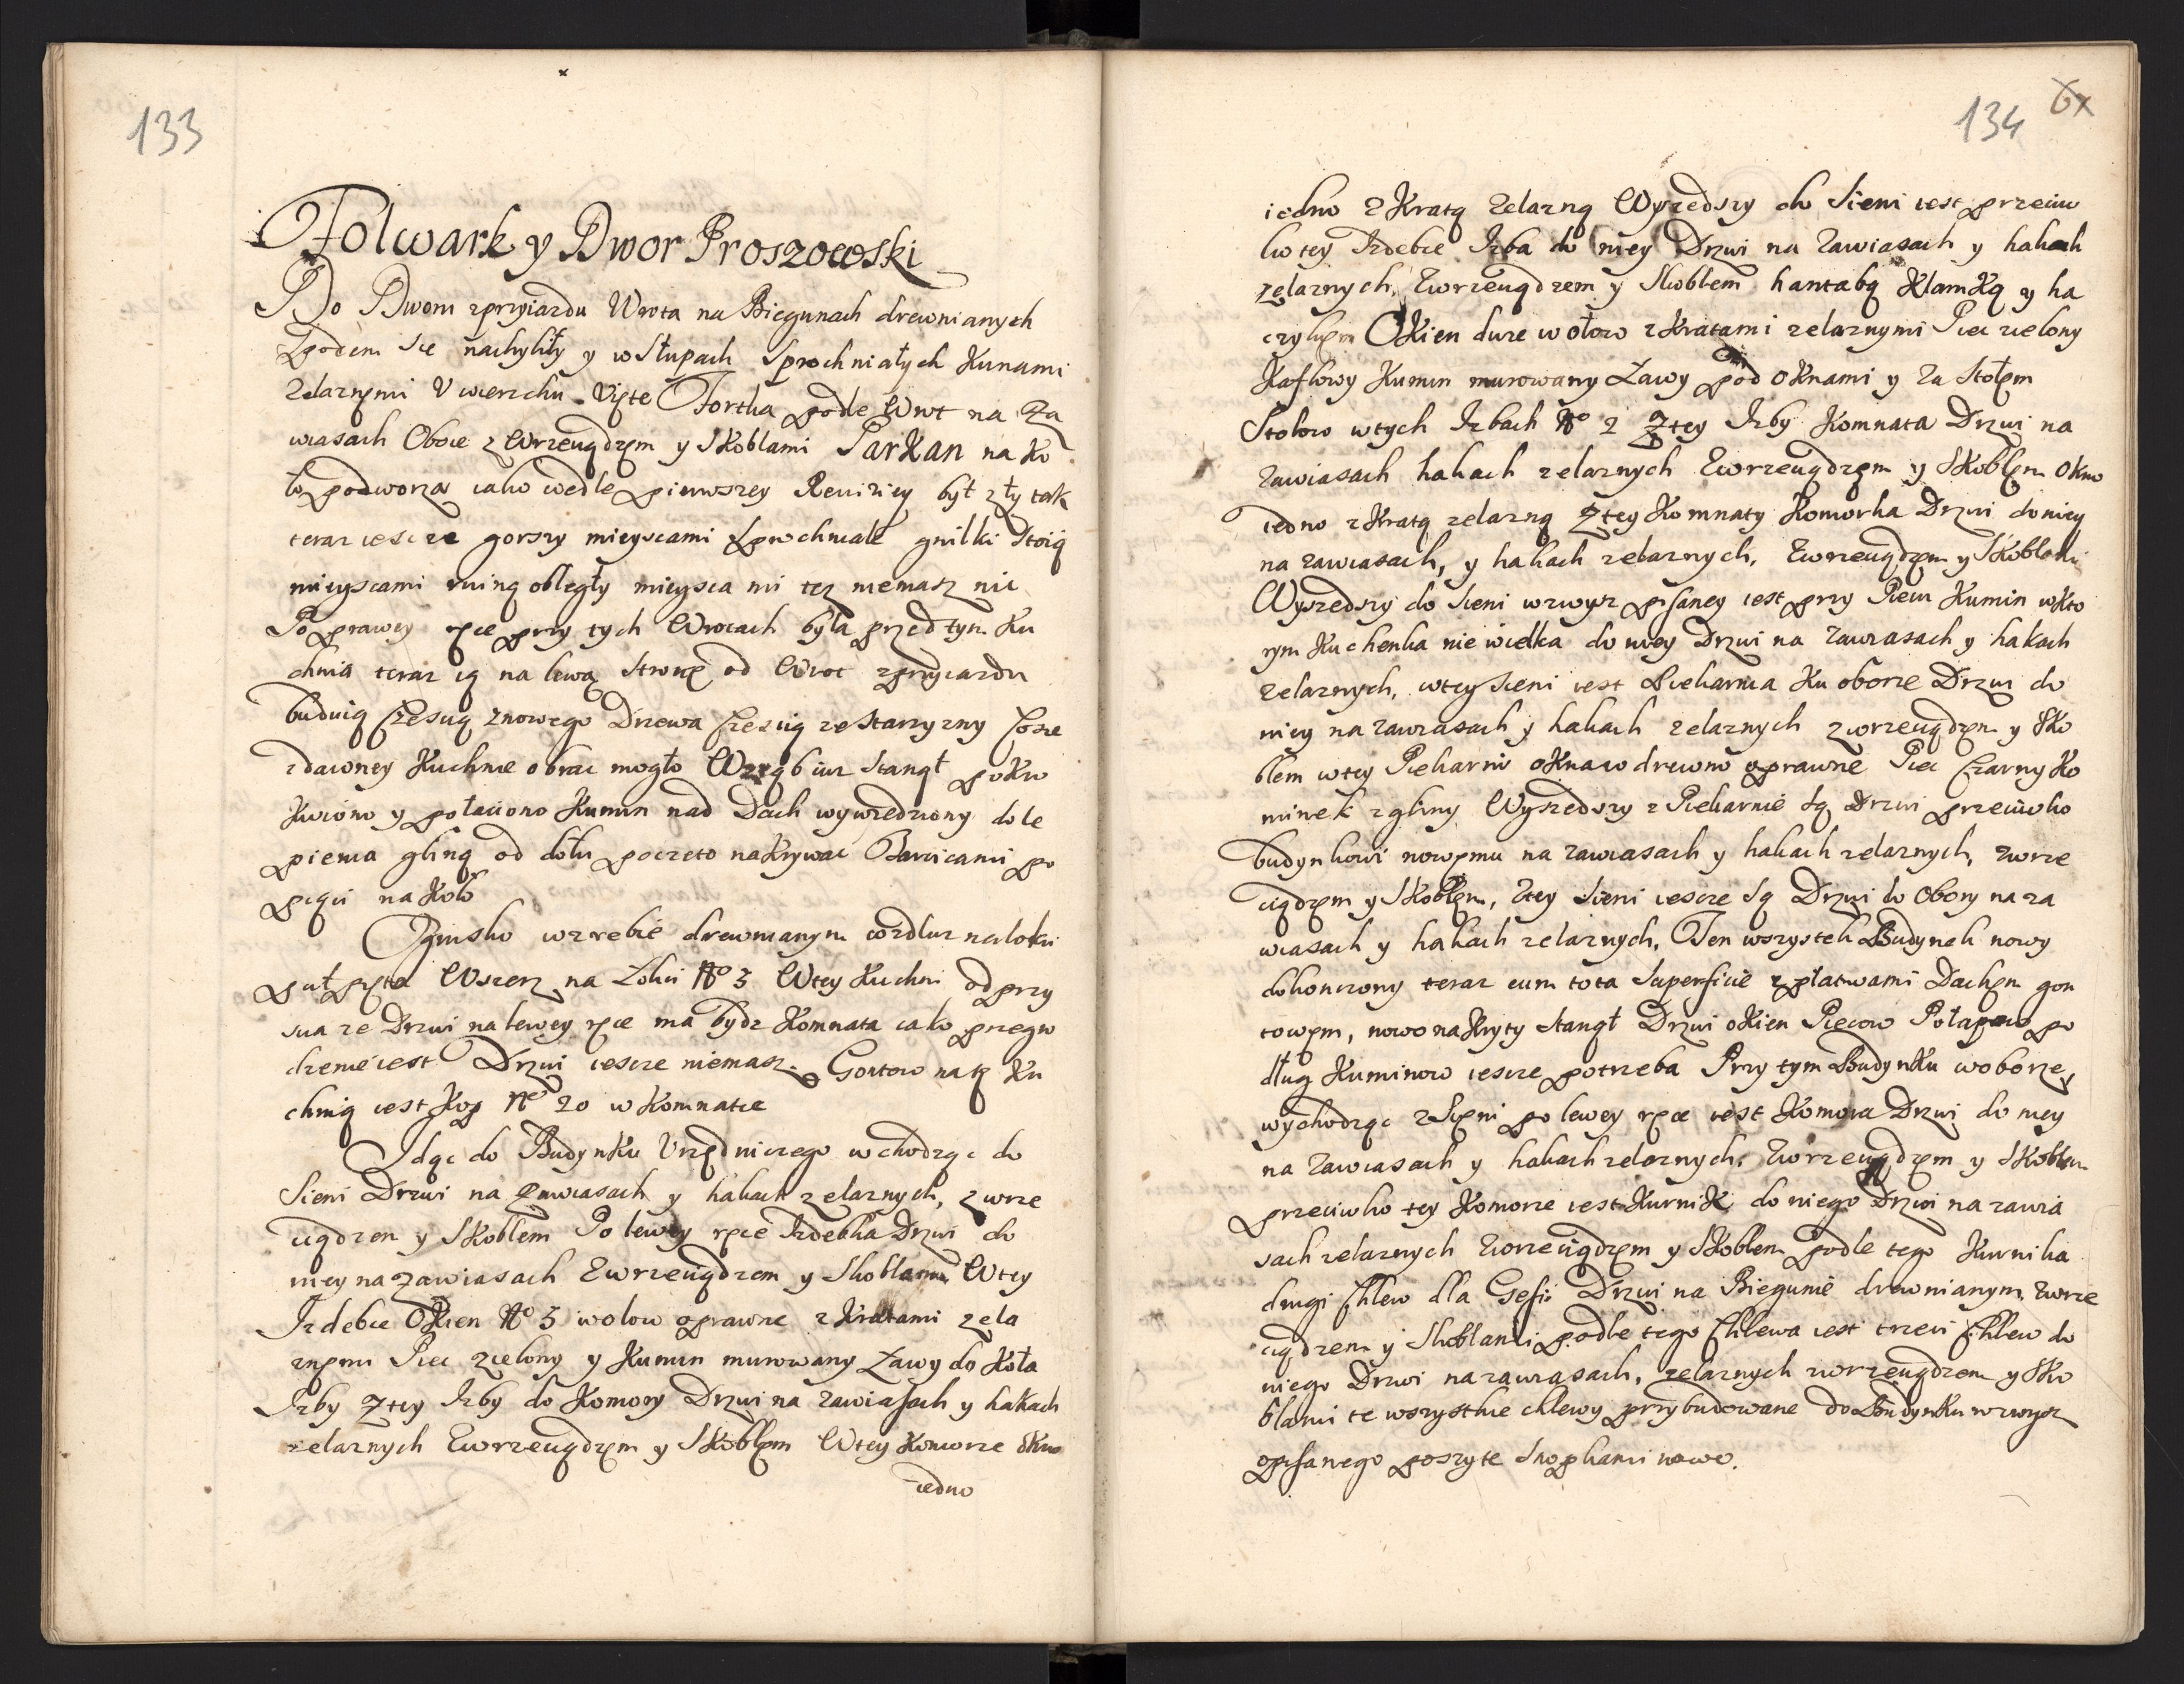 133
Folwark y Dwor Proszowski
Do Dworu zprzyiazdu Wrota na Biegunach drewnianych
Spodem sie nachyliły y w Słupach Sprochniałych Kunami
Zelaznęmi V wierzchu Vięte Fortka podle Wrot na Za
wiasach Oboie z Wrzeciądzęm y Skoblami Parkan na Ko
ło podworza iako wedle pierwszey Rewiziey był zły tak
teraz iescze gorszy mieyscami Sprochniałe gnilki Stoią
mieyscami ruiną obległy mieysca mi tez niemasz nic
Po prawey ręce przy tych Wrotach była przedtym Ku
chnia teraz ią na lewą Stronę od Wrot zprzyiazdu
buduią Częscią znowego Drzewa Częscią ze Starzyzny Cosie
zdawney Kuchnie obrac mogło Wrząb iuz Stanął pokro
kwiono y połaciono Kumin nad Dach wywiedziony do le
pienia gliną od dołu poczeto nakrywac Barcicami po
pięci na Koło
Ognisko wzrebie drewnianym wzdłuz na łokci
puł pięta Wszerz na Łokci No 3 Wtey Kuchni od przy
scia ze Drzwi na lewey ręce ma bydz Komnata iako przegro
dzenie iest Drzwi iescze niemasz. Gontow na tę Ku
chnią iest Kop No 20 w Komnacie
Idąc do Budynku Vrzędniczego wchodząc do
Sieni Drzwi na Zawiasach y hakach zelaznych, z wrze
ciądzem y Skoblem Po lewey ręce Izdebka Drzwi do
niey na zawiasach Zwrzeciądzem y Skoblami Wtey
Izdebce Okien No 3 wołow oprawne z Kratami zela
znęmi Piec zielony y Kumin murowany Ławy do Koła
Izby Ztey Izby do Komory Drzwi na zawiasach y hakach
zelaznych Zwrzeciądzęm y Skoblęm Wtey Komorze Okno
iedno
134
6x
iedno z Kratą Zelazną Wyszedszy do Sieni iest przeciw
ko tey Izdebce Izba do niey Drzwi na Zawiasach y hakach
zelaznych, Zwrzeciądzem y Skoblem hantabą Klamką y ha
czykęm Okien dwie w ołow z Kratami zelaznymi Piec zielony
Kaflowy Kumin murowany Ławy pod oknami y Za Stołęm
Stołow wtych Izbach No 2 Ztey Izby Komnata Drzwi na
zawiasach hakach zelaznych Zwrzeciądzęm y Skoblęm Okno
iedno z Kratą zelazną Ztey Komnaty Komorka Drzwi do niey
na zawiasach, y hakach zelaznych, Zwrzeciądzęm y Skoblami
Wyszedszy do Sieni wzwyz psaney iest przy Piecu Kumin wKto
rym Kuchenka nie wielka do niey Drzwi na Zawiasach y hakach
zelaznych, wtey Sieni iest Piekarnia Ku oborze Drzwi do
niey na zawiasach y hakach zelaznych z wrzeciądzęm y Sko
blem wtey Piekarni okna w drewno oprawne Piec Czarny Ko
minek z gliny Wyszedszy z Piekarnie Są Drzwi przeciwko
budynkowi nowęmu na zawiasach y hakach zelaznych, zwrze
ciądzęm y Skoblęm, Ztey Sieni iescze Są Drzwi do Obory na za
wiasach y hakach zelaznych, Ten wszystek Budynek nowy
dokonczony teraz cum tota Superficie z płatwami Dachęm gon
towęm, nowo nakryty Stanął Drzwi okien Piecow Połapow po
dług Kuminow iescze potrzeba Przy tym Budynku w oborze,
wychodząc z Sięni po lewey ręce iest Komora Drzwi do niey
na Zawiasach y hakach zelaznych, Zwrzeciądzęm y Skoblem
przeciwko tey Komorze iest Kurnik do niego Drzwi na zawia
sach zelaznych Zwrzeciądzęm y Skoblem podle tego Kurnika
drugi Chlew dla Gęsi Drzwi na Biegunie drewnianym, zwrze
ciądzem y Skoblami podle tego Chlewa iest trzeci Chlew do
niego Drzwi na zawiasach, zelaznych zwrzeciądzem y Sko
blami te wszystkie chlewy przybudowane do Budynku wzwysz
opisanego poszyte Snopkami nowo.